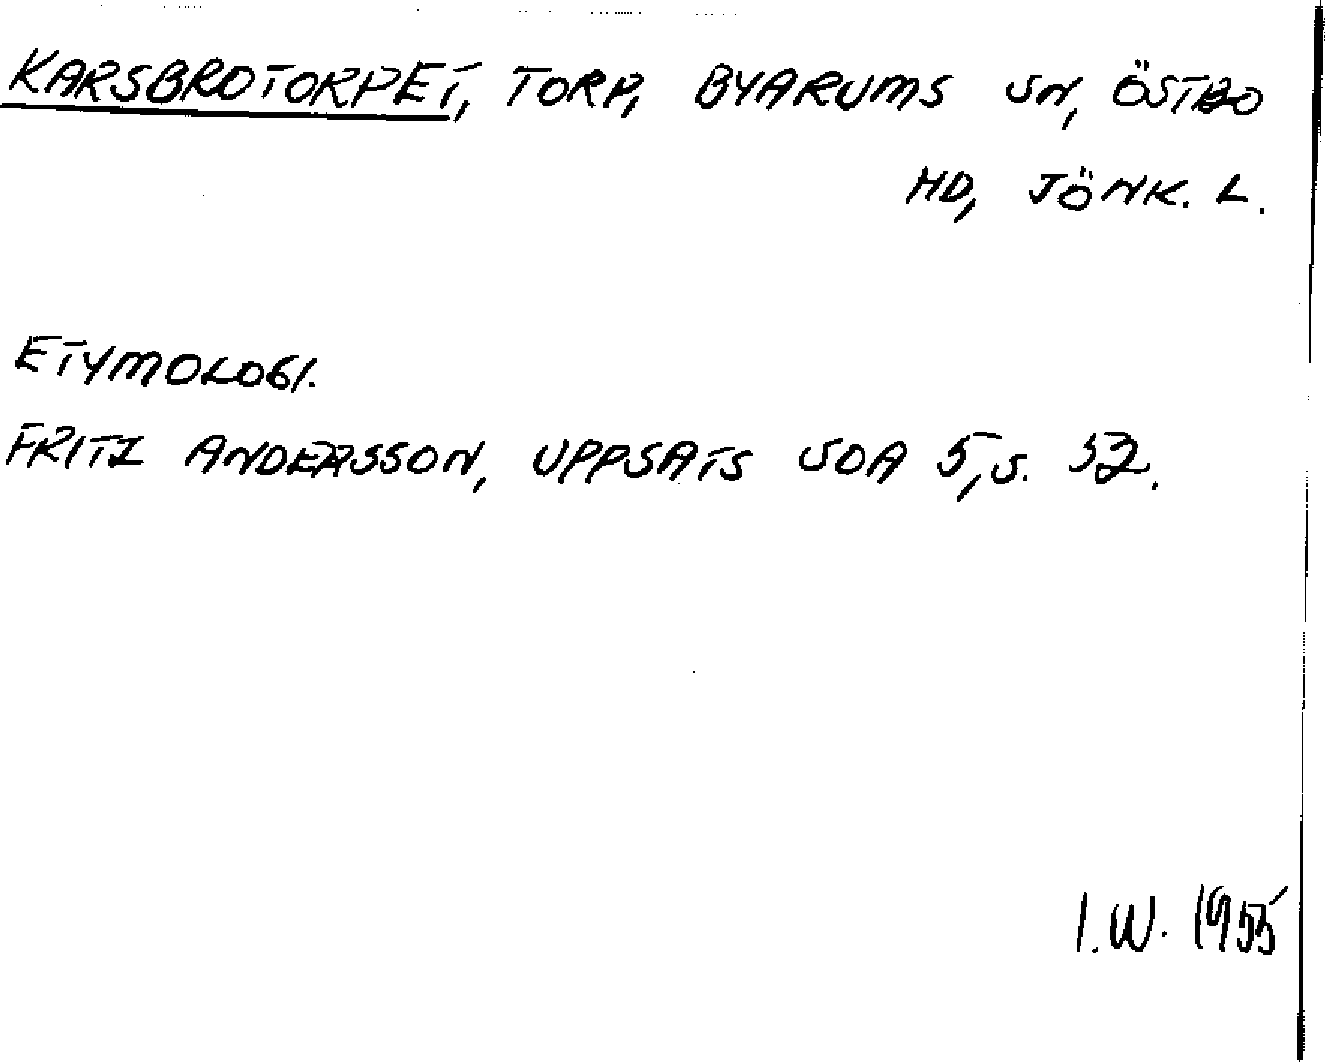 KARSBROTORPET, TORP, BYARUMS SN, ÖSTBO
HD, JÖNK. L.
ETYMOLOGI.
FRITZ ANDERSSON, UPPSATS SOA 5, S. 52.
I.W. 1955